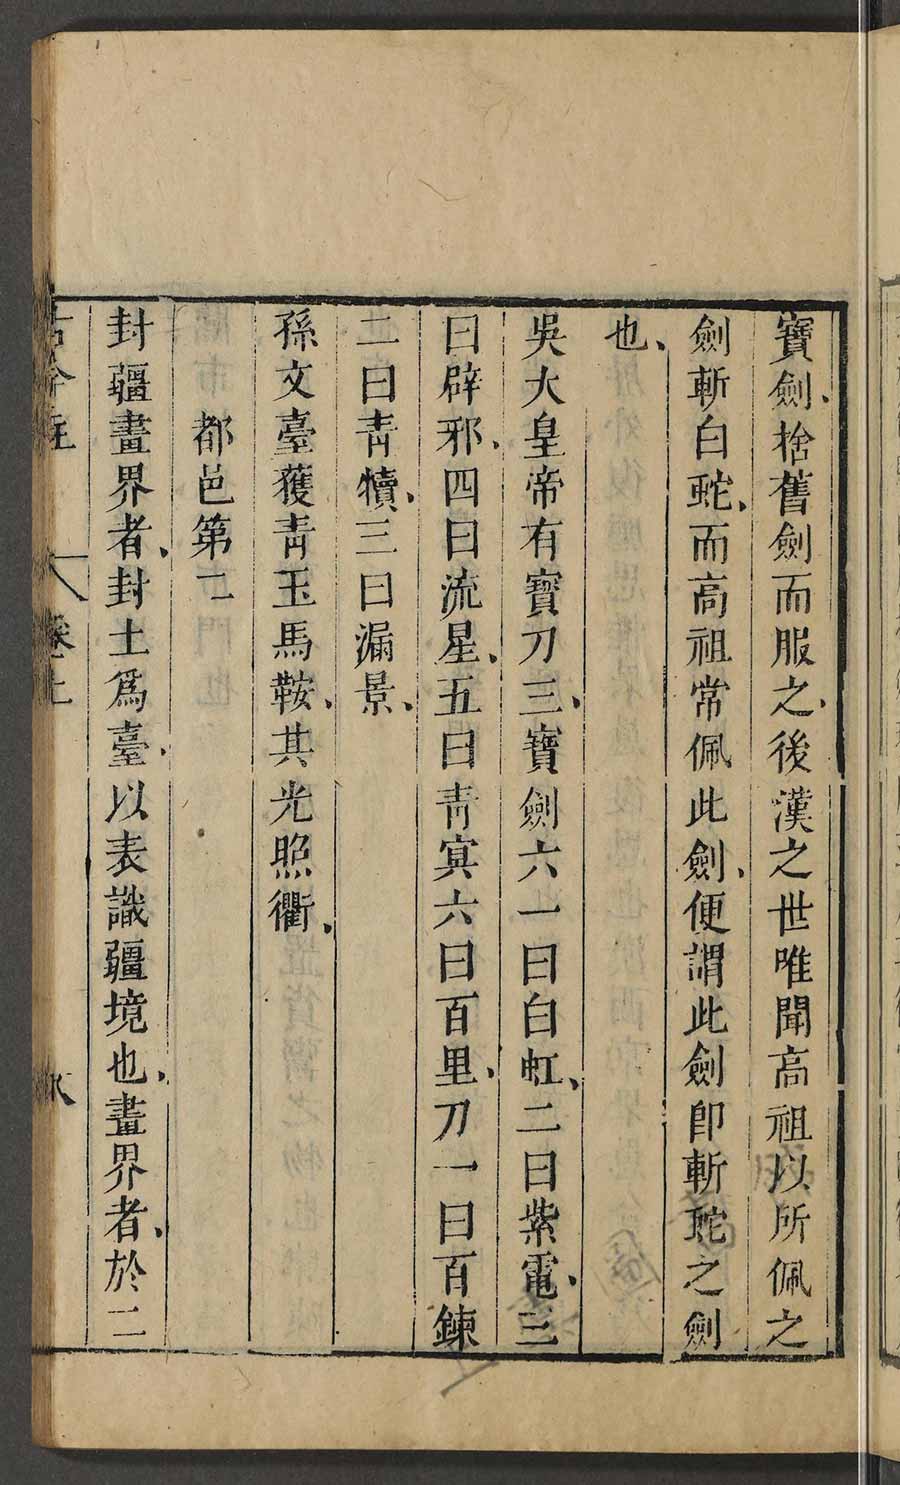 寶劍、捨舊劍而服之、後漢之世唯聞高祖以所佩之
劍斬白虵、而高祖常佩此劍、便謂此劍卽斬虵之劍
也、
吳大皇帝有寶刀三、寶劍六一曰白虹、二曰紫電、三
曰辟邪、四曰流星、五曰靑㝠六曰百里、刀一曰百鍊
二曰靑犢、三曰漏景、
孫文臺獲靑玉馬鞍、其光照衢、
都邑第二
封疆畫界者、封土爲臺、以表識疆境也、畫界者、於二
古今注
卷上